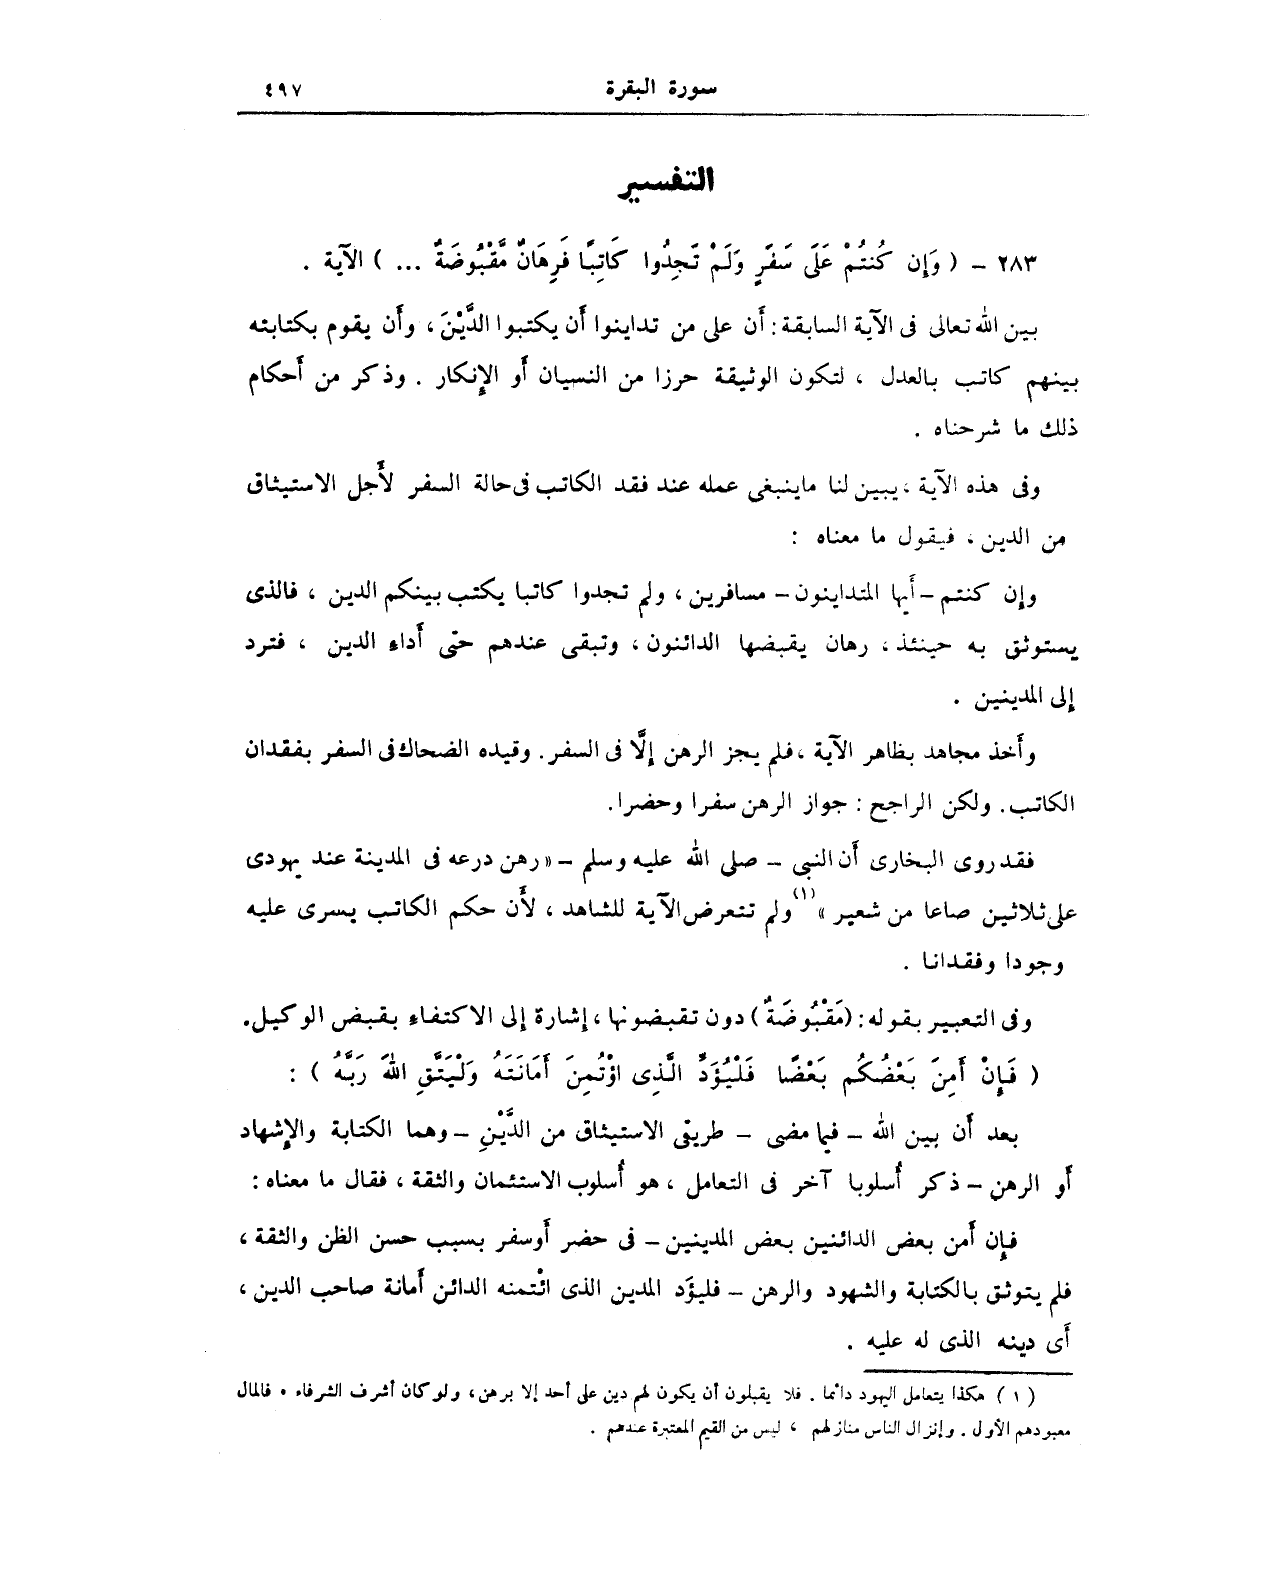 سورة البقرة ٤٩٧
التفسير
٢٨٣ - ( وَإِن كُنتُمْ عَلَى سَفَرٍ وَلَمْ تَجِدُوا كَاتِبًا فَرِهَانٌ مَّقْبُوضَةٌ ... ) الآية .
بين الله تعالى فى الآية السابقة: أن على من تداينوا أن يكتبوا الدَّيْنَ، وأن يقوم بكتابته
بينهم كاتب بالعدل ، لتكون الوثيقة حرزا من النسيان أو الإنكار . وذكر من أحكام
ذلك ما شرحناه .
وفى هذه الآية ، يبين لنا ماينبغى عمله عند فقد الكاتب فى حالة السفر لأجل الاستيثاق
من الدين ، فيقول ما معناه :
وإن كنتم - أيها المتداينون - مسافرين ، ولم تجدوا كاتبا يكتب بينكم الدين ، فالذى
يستوثق به حينئذ ، رهان يقبضها الدائنون ، وتبقى عندهم حتى أداء الدين ، فترد
إلى المدينين .
وأخذ مجاهد بظاهر الآية ، فلم يجز الرهن إلَّا فى السفر. وقيده الضحاك فى السفر بفقدان
الكاتب. ولكن الراجح : جواز الرهن سفرا وحضرا.
فقد روى البخارى أن النبى - صلى الله عليه وسلم - «رهن درعه فى المدينة عند يهودى
على ثلاثين صاعا من شعير »(١) ولم تتعرض الآية للشاهد ، لأن حكم الكاتب يسرى عليه
وجودا وفقدانا .
وفى التعبير بقوله: (مَقْبُوضَةٌ) دون تقبضونها ، إشارة إلى الاكتفاء بقبض الوكيل.
( فَإِنْ أَمِنَ بَعْضُكُم بَعْضًا فَلْيُؤَدِّ الَّذِى اؤْتُمِنَ أَمَانَتَهُ وَلْيَتَّقِ اللهَ رَبَّهُ ) :
بعد أن بين الله - فيما مضى - طريقى الاستيثاق من الدَّيْنِ - وهما الكتابة والإشهاد
أو الرهن - ذكر أُسلوبا آخر فى التعامل ، هو أُسلوب الاستئمان والثقة ، فقال ما معناه :
فإن أمن بعض الدائنين بعض المدينين - فى حضر أو سفر بسبب حسن الظن والثقة ،
فلم يتوثق بالكتابة والشهود والرهن - فليؤد المدين الذى ائتمنه الدائن أمانة صاحب الدين ،
أى دينه الذى له عليه .
( ١ ) هكذا يتعامل اليهود دائما . فلا يقبلون أن يكون لهم دين على أحد إلا برهن ، ولو كان أشرف الشرفاء . فالمال
معبودهم الأول . وإنزال الناس منازلهم ، ليس من القيم المعتبرة عندهم .